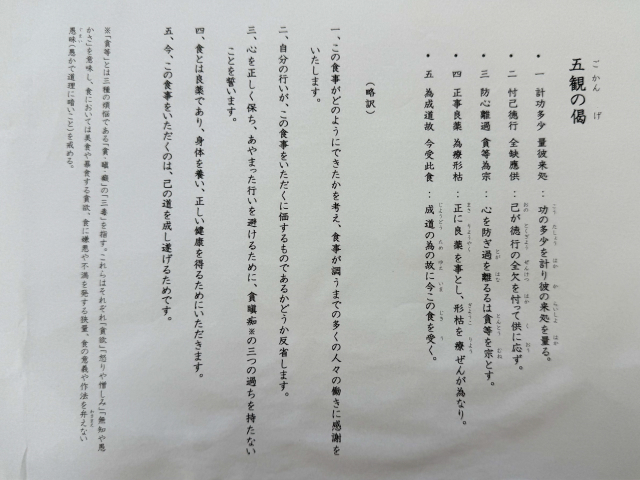 五観の偈
・ 一 計功多少 量彼来処 : 功の多少を計り彼の来処を量る。
・ 二 忖己徳行 全缺應供 : 己が徳行の全欠を忖って供に応ず。
・ 三 防心離過 貪等為宗 : 心を防ぎ過を離るるは貪等を宗とす。
・ 四 正事良薬 為療形枯 : 正に良薬を事とし、形枯を療ぜんが為なり。
・ 五 為成道故 今受此食 : 成道の為の故に今この食を受く。
(略訳)
一、この食事がどのようにできたかを考え、食事が調うまでの多くの人々の働きに感謝を
いたします。
二、自分の行いが、この食事をいただくに価するものであるかどうか反省します。
三、心を正しく保ち、あやまった行いを避けるために、貪瞋痴※の三つの過ちを持たない
ことを誓います。
四、食とは良薬であり、身体を養い、正しい健康を得るためにいただきます。
五、今、この食事をいただくのは、己の道を成し遂げるためです。
※「貪等」とは三種の煩悩である「貪・瞋・癡」の「三毒」を指す。これらはそれぞれ「貪欲」「怒りや憎しみ」「無知や愚
かさ」を意味し、食においては美食や暴食する貪欲、食に嫌悪や不満を発する狭量、食の意義や作法を弁えない
愚昧(愚かで道理に暗いこと)を戒める。